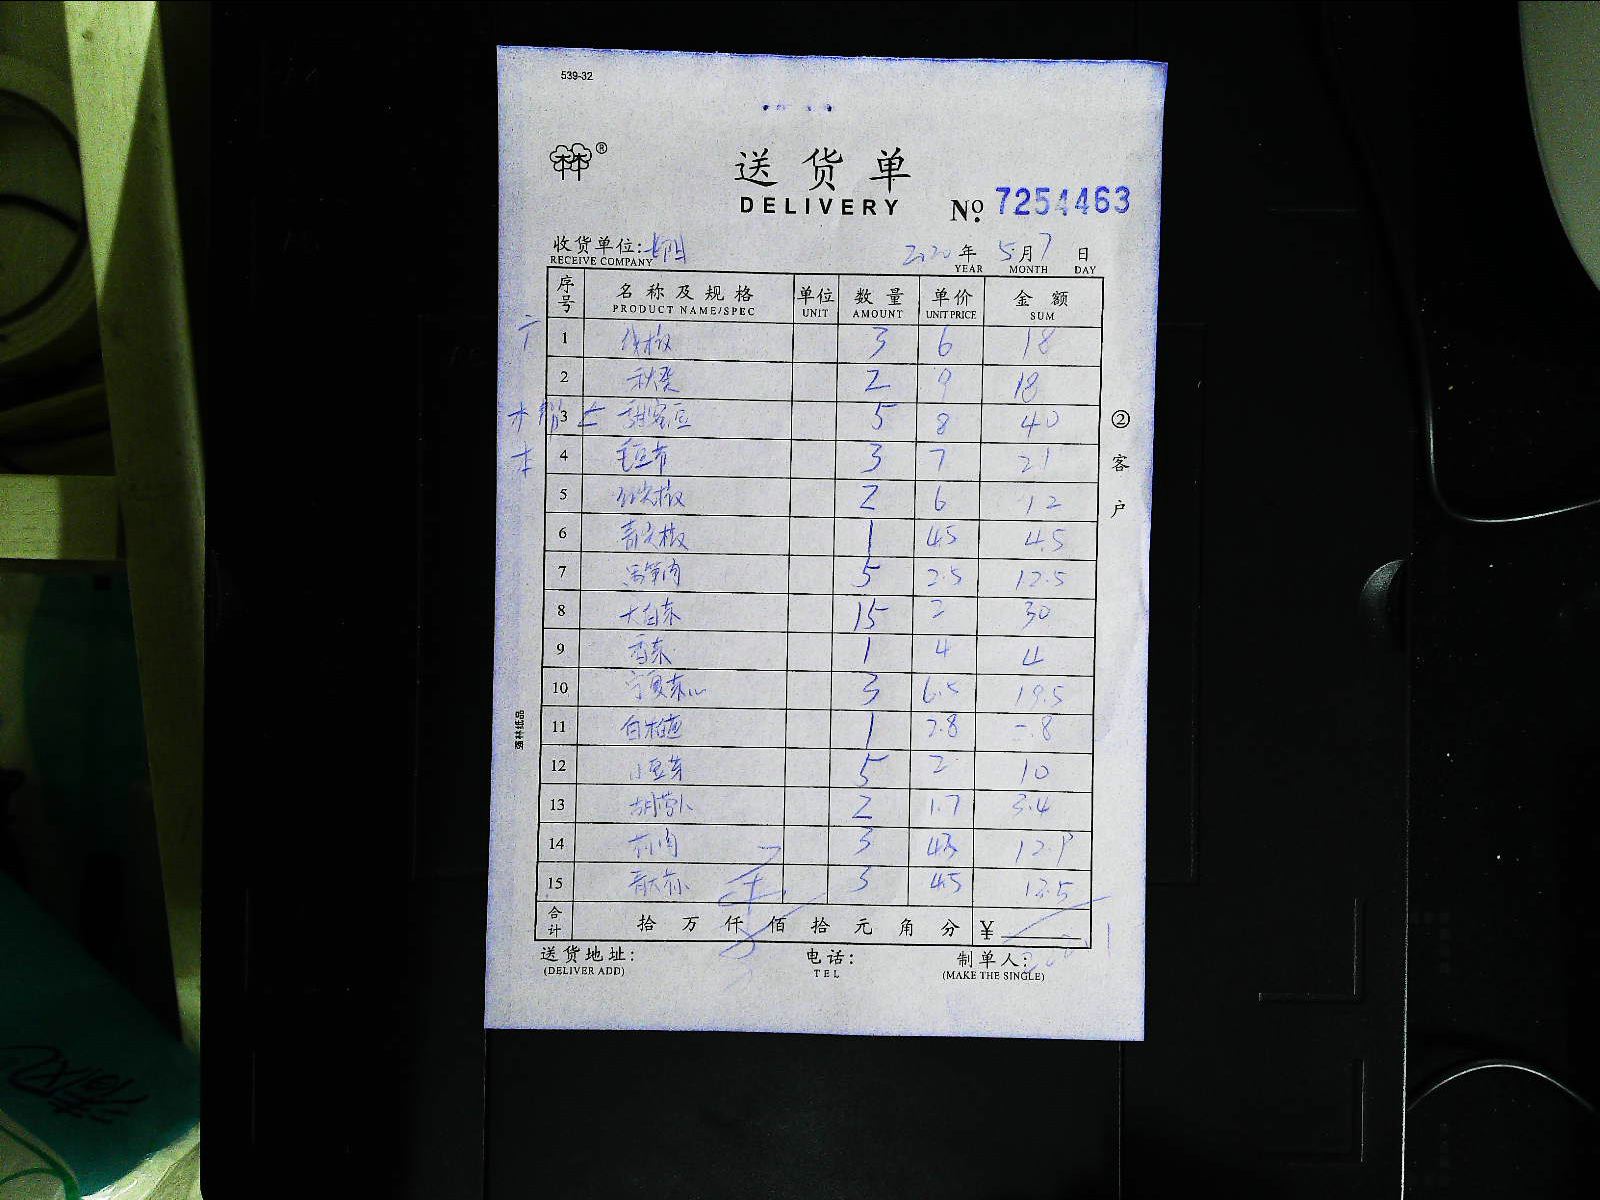 539-32
林®
送货单
DELIVERY No. 7254463
收货单位: 2020年 5月7日
RECEIVE COMPANY YEAR MONTH DAY
序号 名称及规格 单位 数量 单价 金额
PRODUCT NAME/SPEC UNIT AMOUNT UNIT PRICE SUM
1 线椒 3 6 18
2 秋葵 2 9 18
3 甜蜜豆 5 8 40
4 毛豆节 3 7 21
5 红尖椒 2 6 12
6 青尖椒 1 4.5 4.5
7 莴笋肉 5 2.5 12.5
8 大白菜 15 2 30
9 香菜 1 4 4
10 宁夏菜心 3 6.5 19.5
11 白 1 2.8 2.8
12 小豆芽 5 2 10
13 胡萝卜 2 1.7 3.4
14 3 4.3 12.9
15 3 4.5 13.5
合计 拾万仟佰拾元角分 ¥
送货地址: 电话: 制单人:
(DELIVER ADD) TEL (MAKE THE SINGLE)
②客户
强林纸品